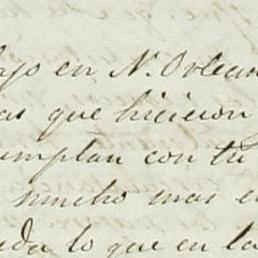 hijo en N. Orlean
as que hicieron
cumplan con tu
mucho mas e
da lo que en la